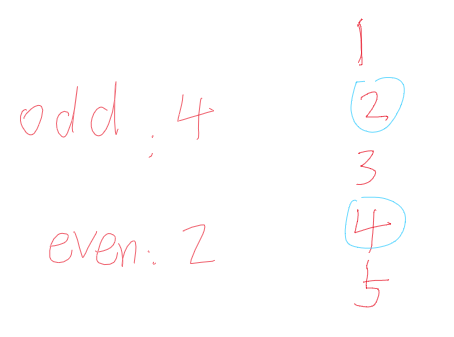 odd : 4
even: 2
1
2
3
4
5